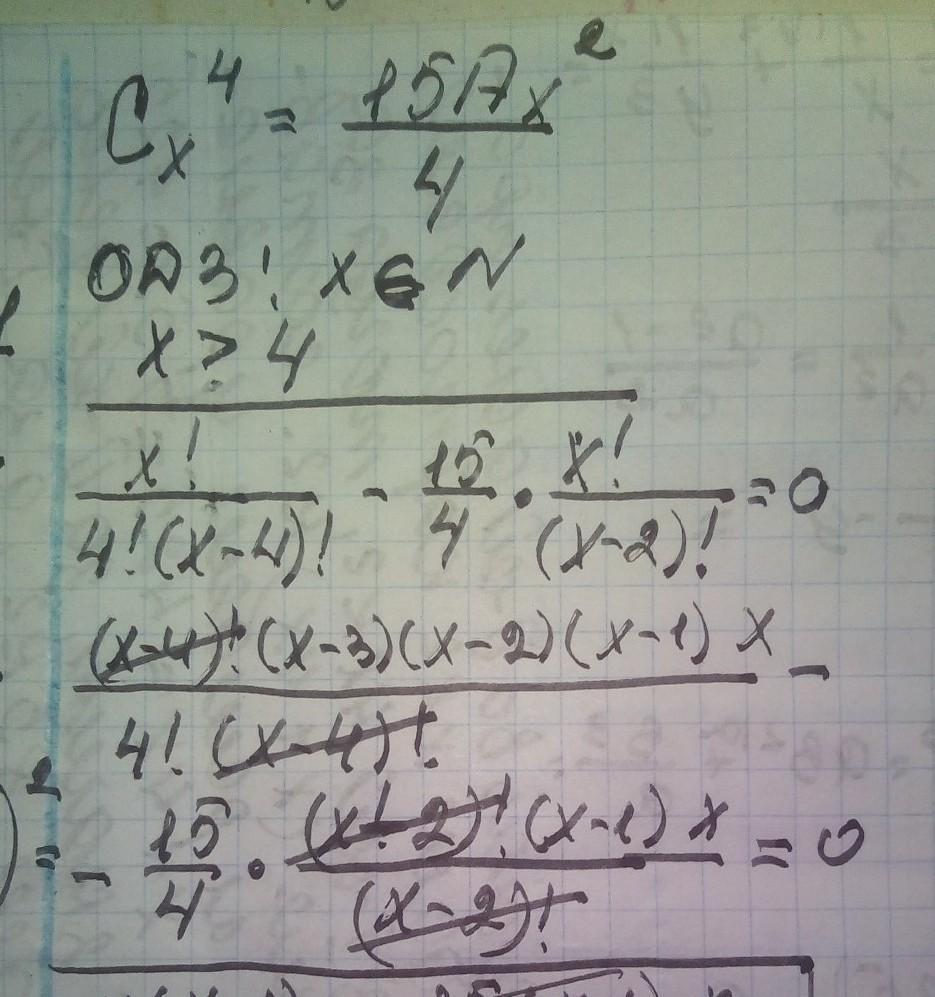 C_x^4 = 15A_x^2 / 4
ОДЗ! x ∈ N
x ≥ 4
x! / 4!(x-4)! - 15/4 · x! / (x-2)! = 0
(x-4)!(x-3)(x-2)(x-1)x / 4!(x-4)! -
- 15/4 · (x!-2)!(x-1)x / (x-2)! = 0